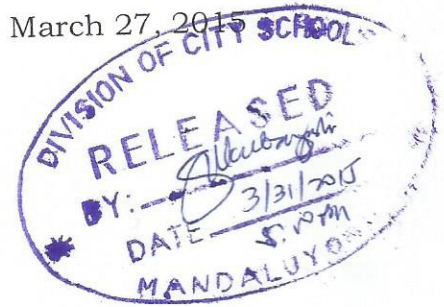 March 27, 2015
DIVISION OF CITY SCHOOLS
RELEASED
BY:
DATE 3/31/2015
MANDALUYONG